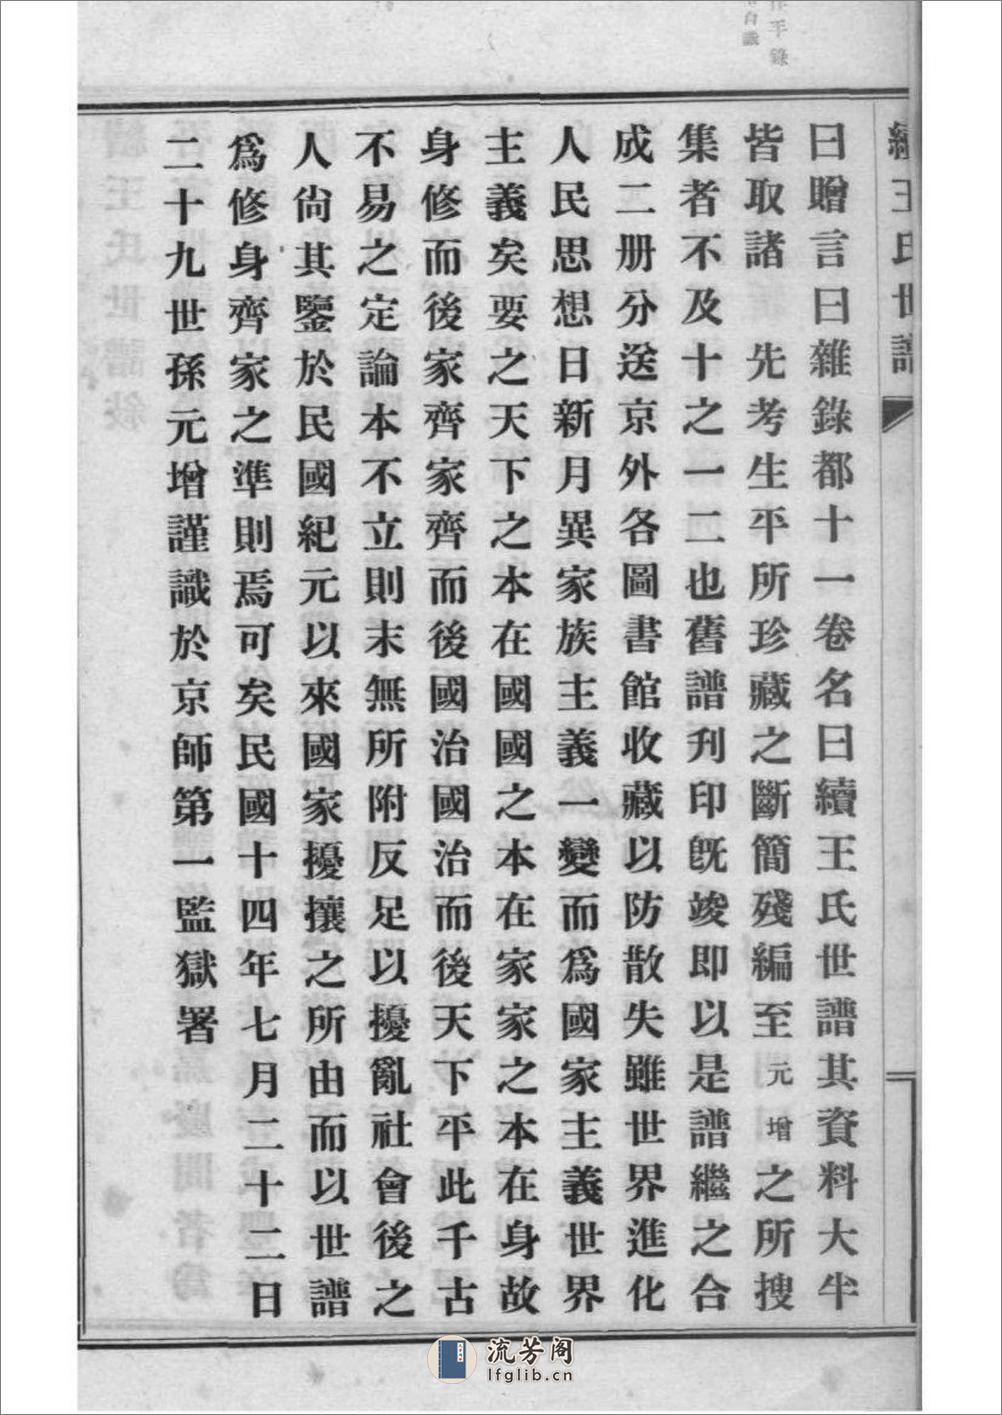 續王氏世譜
曰贈言曰雜錄都十一卷名曰續王氏世譜其資料大半
皆取諸 先考生平所珍藏之斷簡殘編至元增之所搜
集者不及十之一二也舊譜刋印旣竣即以是譜繼之合
成二册分送京外各圖書館收藏以防散失雖世界進化
人民思想日新月異家族主義一變而爲國家主義世界
主義矣要之天下之本在國國之本在家家之本在身故
身修而後家齊家齊而後國治國治而後天下平此千古
不易之定論本不立則末無所附反足以擾亂社會後之
人尙其鑒於民國紀元以來國家擾攘之所由而以世譜
爲修身齊家之準則焉可矣民國十四年七月二十二日
二十九世孫元增謹識於京師第一監獄署
流芳阁
lfglib.cn